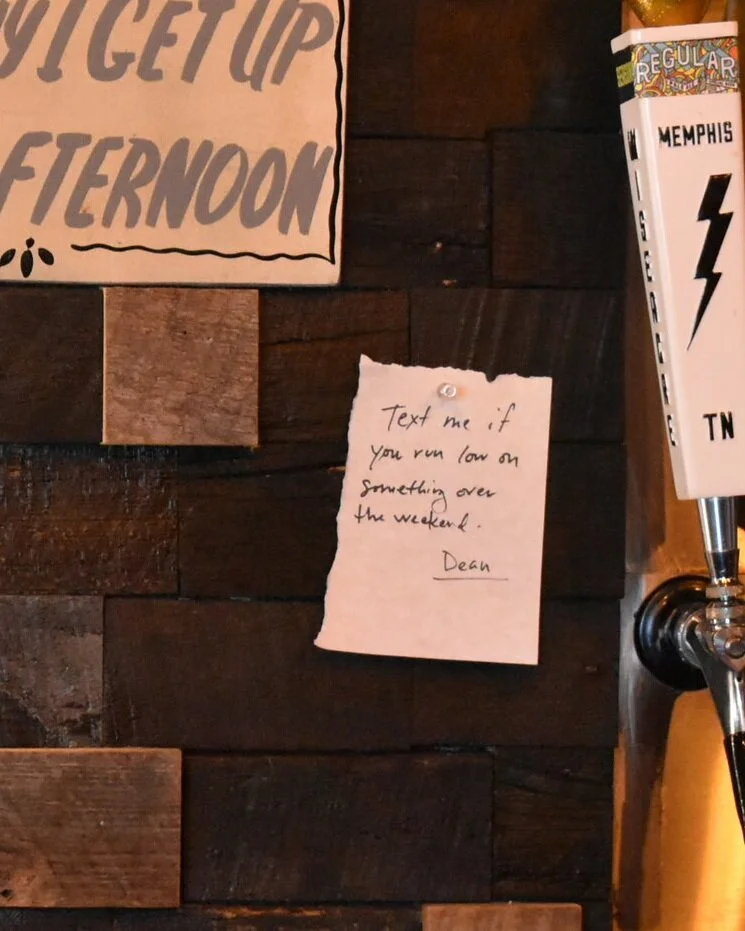 Y I GET UP
FTERNOON
Text me if
you run low on
something over
the weekend.
Dean
REGULAR
MEMPHIS
TN
WISEACRE